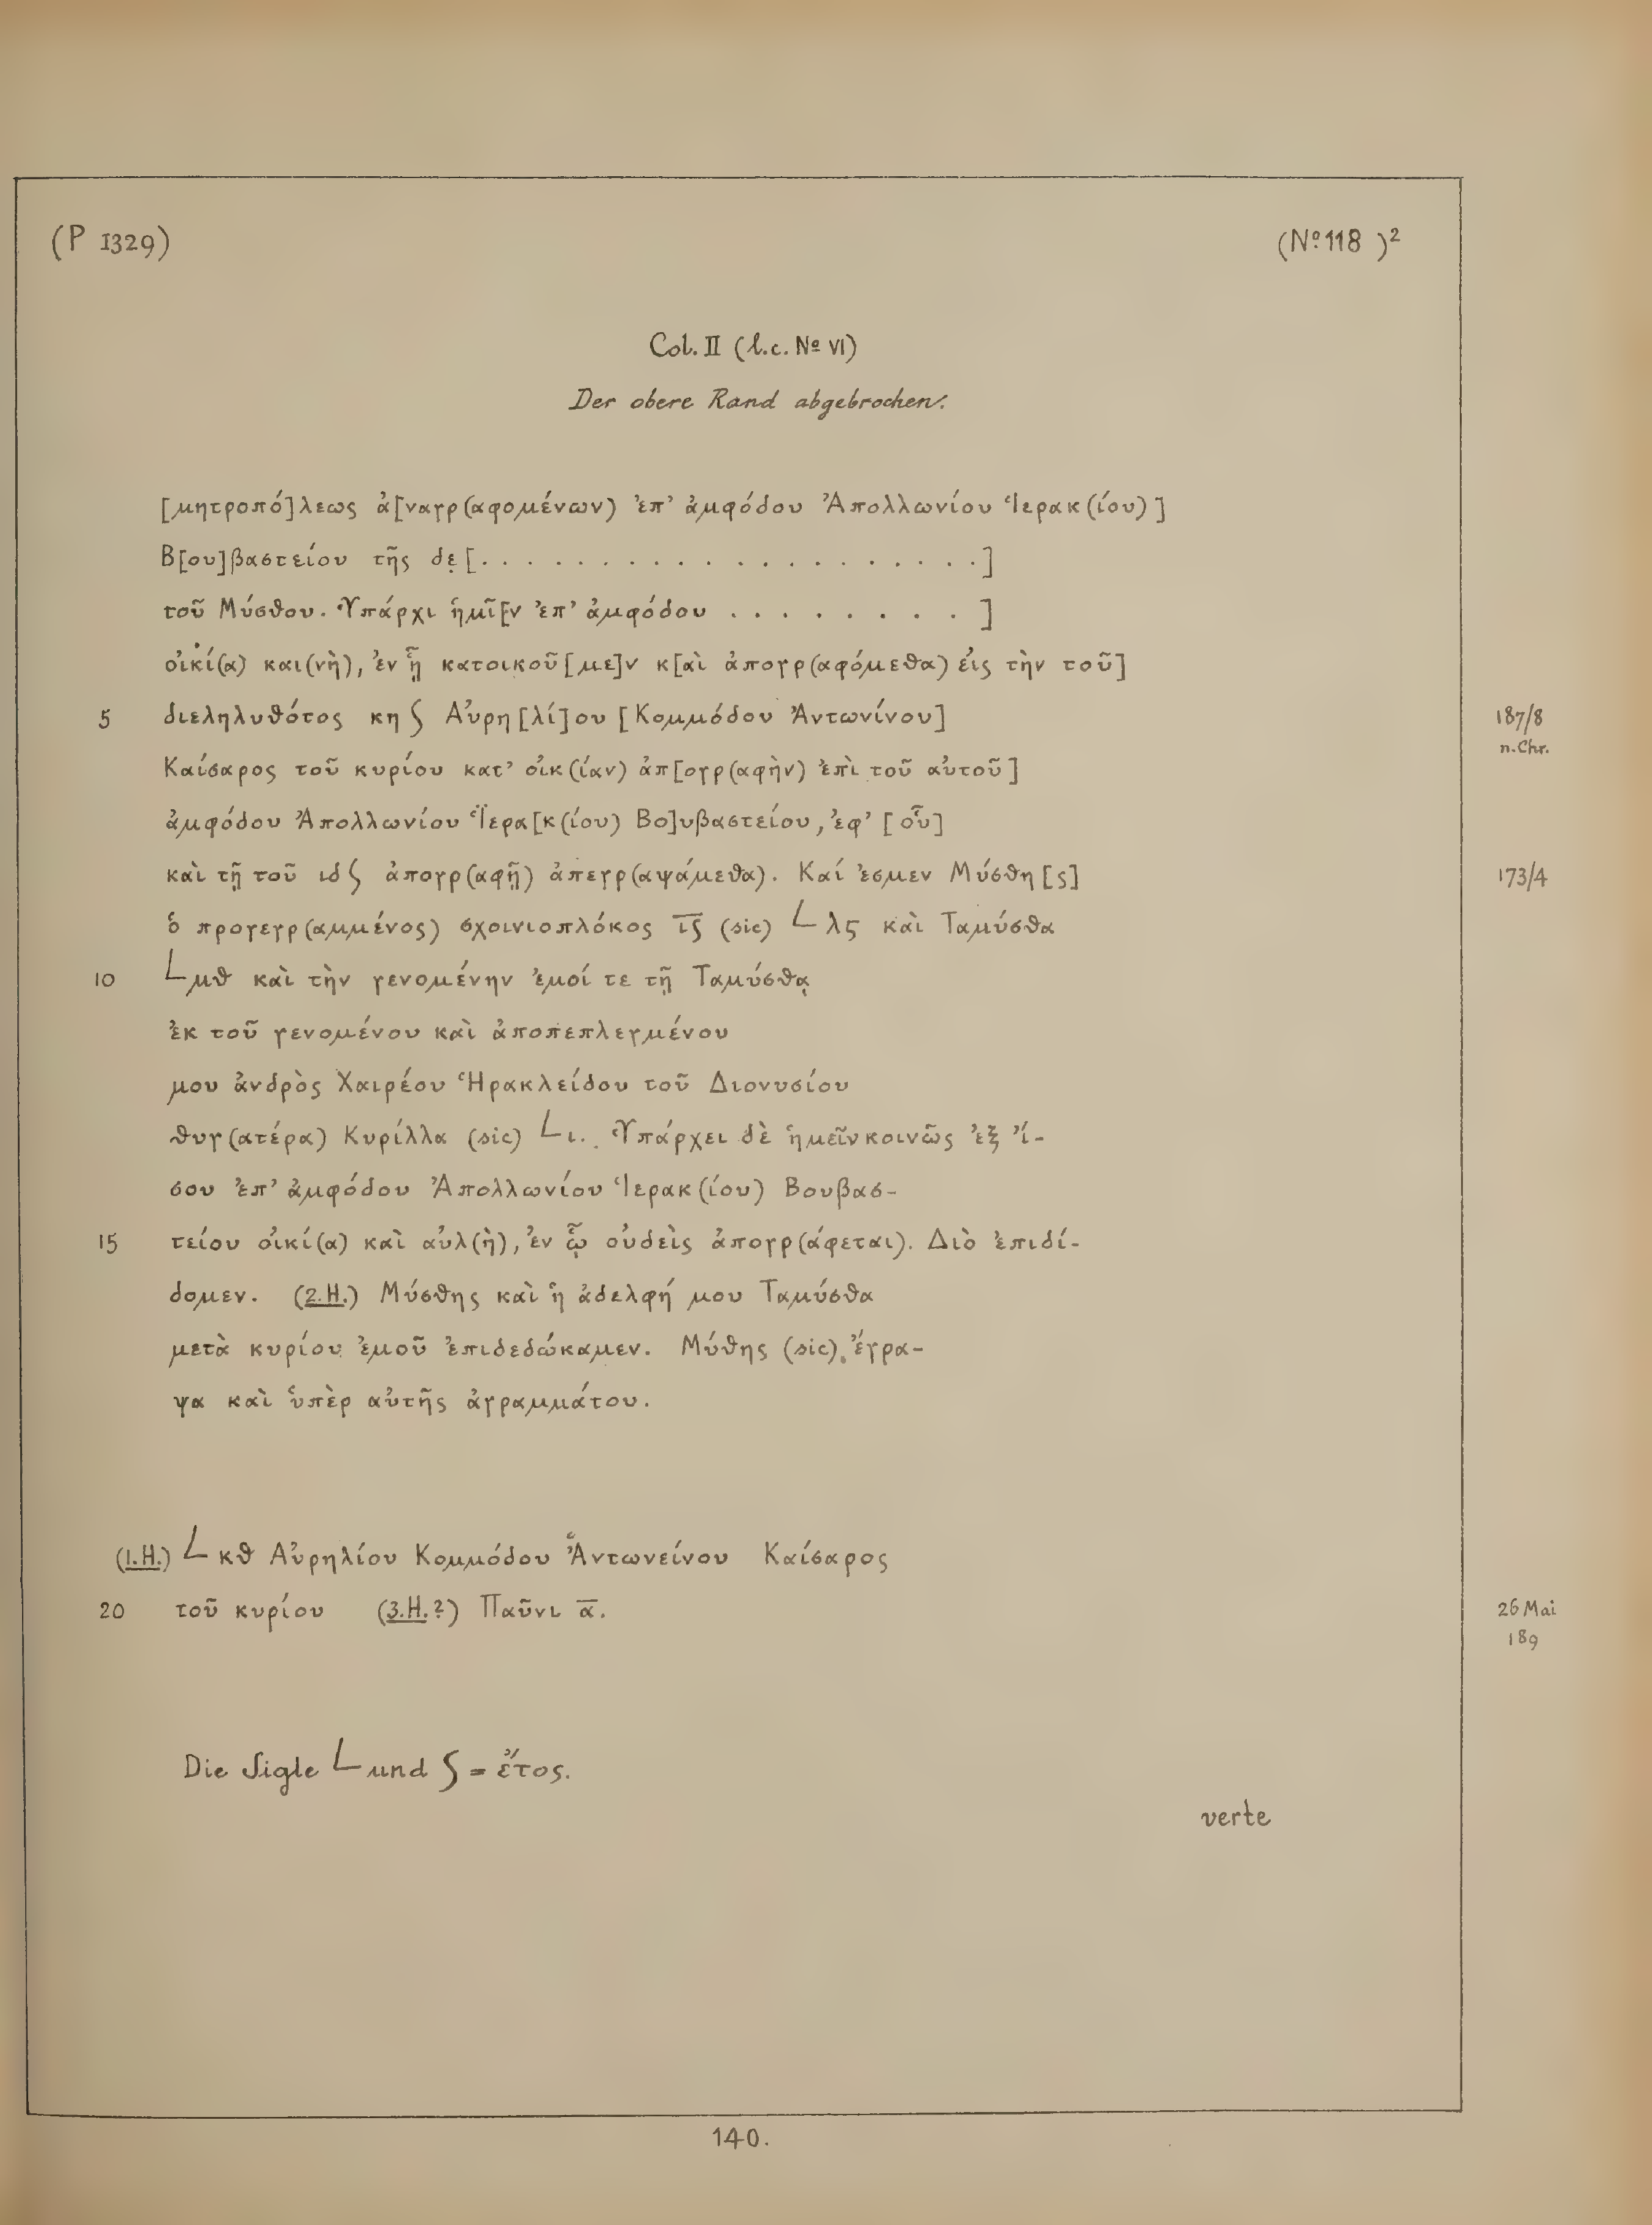 (P 1329) (No 118 )2
Col. II (l.c. No VI)
Der obere Rand abgebrochen.
[μητροπό]λεως ἀ[ναγρ(αφομένων) ἐπ' ἀμφόδου Ἀπολλωνίου Ἱερακ(ίου)]
Β[ου]βαστείου τῆς δε̣[. . . . . . . . . . . . . . . . . . . .]
τοῦ Μύσθου. Ὑπάρχι ἡμῖ[ν ἐπ' ἀμφόδου . . . . . . . . ]
οἰκί(α) και(νὴ), ἐν ᾗ κατοικοῦ[με]ν κ[αὶ ἀπογρ(αφόμεθα) εἰς τὴν τοῦ]
5 διεληλυθότος κη ϛ Αὐρη[λί]ου [Κομμόδου Ἀντωνίνου] 187/8
n. Chr.
Καίσαρος τοῦ κυρίου κατ' οἰκ(ίαν) ἀπ[ογρ(αφὴν) ἐπὶ τοῦ αὐτοῦ]
ἀμφόδου Ἀπολλωνίου Ἱ̈ερα[κ(ίου) Βο]υβαστείου, ἐφ' [οὗ]
καὶ τῇ τοῦ ιδ ϛ ἀπογρ(αφῇ) ἀπεγρ(αψάμεθα). Καί ἐσμεν Μύσθη[ς] 173/4
ὁ προγεγρ(αμμένος) σχοινιοπλόκος ι̅ϛ̅ (sic) L λϛ καὶ Ταμύσθα
10 L μθ καὶ τὴν γενομένην ἐμοί τε τῇ Ταμύσθᾳ
ἐκ τοῦ γενομένου καὶ ἀποπεπλεγμένου
μου ἀνδρὸς Χαιρέου Ἡρακλείδου τοῦ Διονυσίου
θυγ(ατέρα) Κυρίλλα (sic) L ι. Ὑπάρχει δὲ ἡμεῖν κοινῶς ἐξ ἴ-
σου ἐπ' ἀμφόδου Ἀπολλωνίου Ἱερακ(ίου) Βουβασ-
15 τείου οἰκί(α) καὶ αὐλ(ὴ), ἐν ᾧ οὐδεὶς ἀπογρ(άφεται). Διὸ ἐπιδί-
δομεν. (2.H.) Μύσθης καὶ ἡ ἀδελφή μου Ταμύσθα
μετὰ κυρίου ἐμοῦ ἐπιδεδώκαμεν. Μύθης (sic) ἔγρα-
ψα καὶ ὑπὲρ αὐτῆς ἀγραμμάτου.
(1.H.) L κθ Αὐρηλίου Κομμόδου Ἀντωνείνου Καίσαρος
20 τοῦ κυρίου (3.H.?) Παῦνι α̅. 26 Mai
189
Die Sigle L und ϛ = ἔτος.
verte
140.